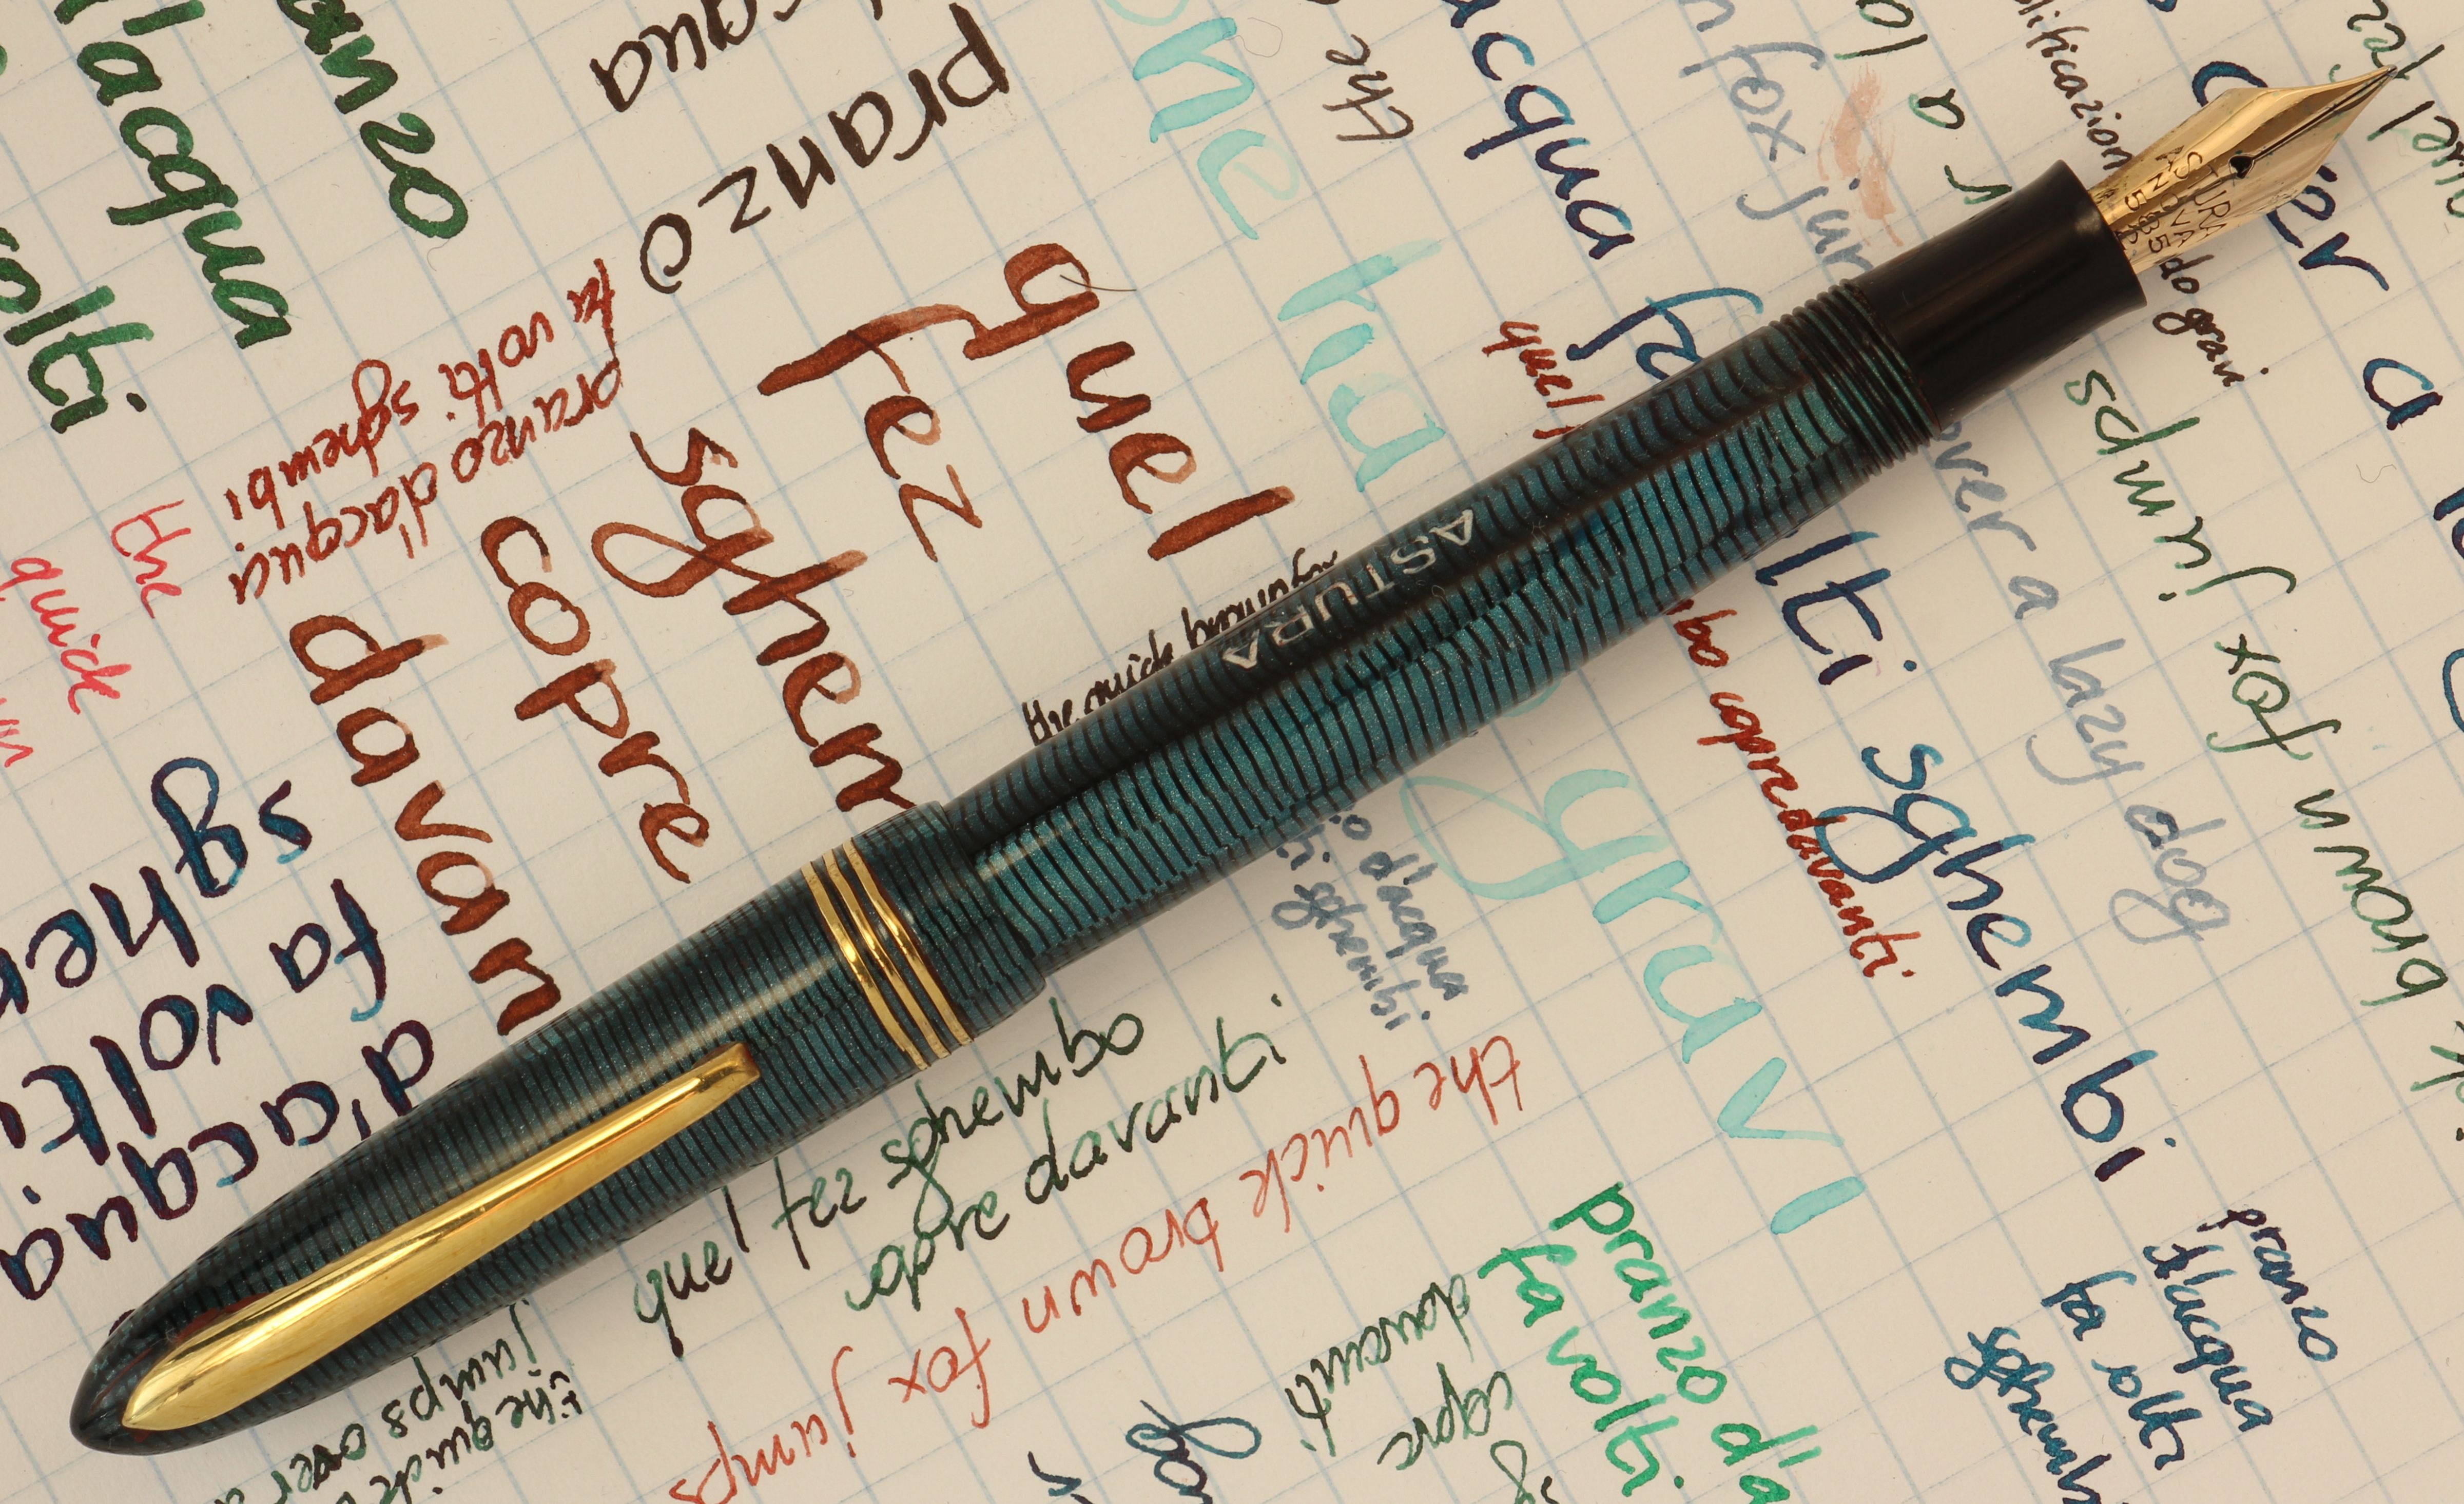 l'acqua
volti
pranzo
pranzo
quel
fez
sghem
copre
davan
pranzo d'acqua
fa volti sghembi
the
quick
sghe
fa volti
d'acqua
the quick brown
ASTURA
ASTURA
585
the
acqua fa volti sghembi
fox jum over a lazy dog
quel
bo copre davanti
ha
gravi
do gravi
brown fox jumps
over a
d'acqua
sghembi
quel fez sghembo
copre davanti
the quick brown fox jumps
the quick
jumps over
copre
davanti
pranzo d'a
fa volti
pranzo
d'acqua
fa volti
sghemb